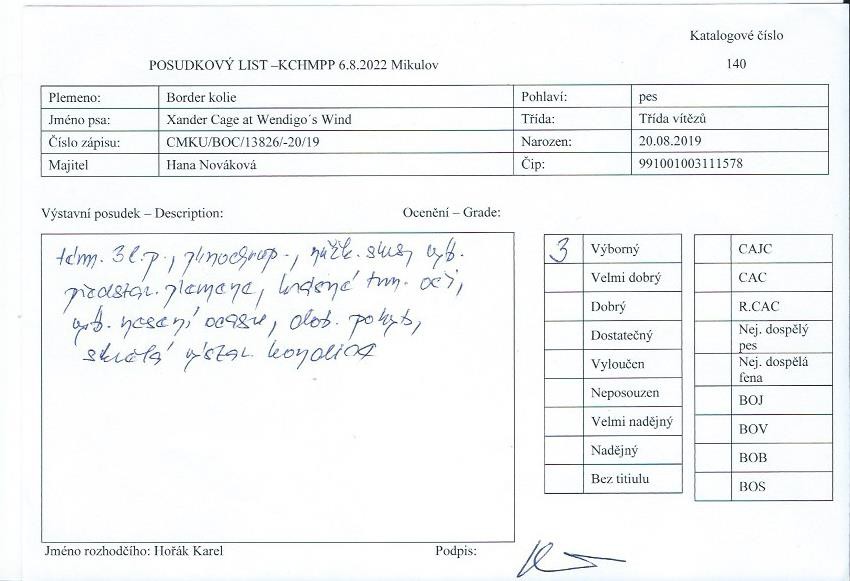 Katalogové číslo
POSUDKOVÝ LIST –KCHMPP 6.8.2022 Mikulov
140
Plemeno: Border kolie Pohlaví: pes
Jméno psa: Xander Cage at Wendigo´s Wind Třída: Třída vítězů
Číslo zápisu: CMKU/BOC/13826/-20/19 Narozen: 20.08.2019
Majitel Hana Nováková Čip: 991001003111578
Výstavní posudek – Description: Ocenění – Grade:
3 l.p., plnochrup., nůžk. skus, výb.
představ. plemene, krásné tm. oči,
výb. nesení ocasu, dob. pohyb,
skvělá výstav. kondice
3 Výborný
Velmi dobrý
Dobrý
Dostatečný
Vyloučen
Neposouzen
Velmi nadějný
Nadějný
Bez titiulu
CAJC
CAC
R.CAC
Nej. dospělý
pes
Nej. dospělá
fena
BOJ
BOV
BOB
BOS
Jméno rozhodčího: Hořák Karel Podpis: